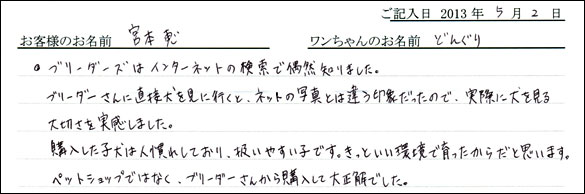 ご記入日 2013 年 5 月 2 日
お客様のお名前 宮本 恵 ワンちゃんのお名前 どんぐり
○ ブリーダーズはインターネットの検索で偶然知りました。
ブリーダーさんに直接犬を見に行くと、ネットの写真とは違う印象だったので、実際に犬を見る
大切さを実感しました。
購入した子犬は人慣れしており、扱いやすい子です。きっといい環境で育ったからだと思います。
ペットショップではなく、ブリーダーさんから購入して大正解でした。